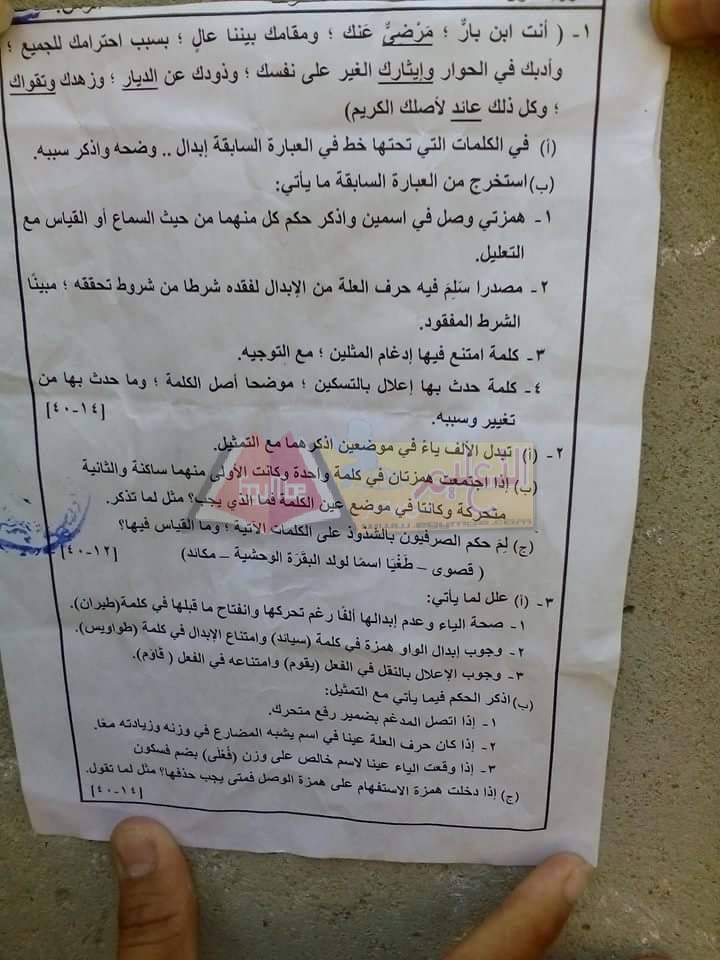 ١- ( أنت ابن بارٌّ ؛ مَرْضيٌّ عَنك ؛ ومقامك بيننا عالٍ ؛ بسبب احترامك للجميع ؛
وأدبك في الحوار وإيثارك الغير على نفسك ؛ وذودك عن الديار ؛ وزهدك وتقواك
؛ وكل ذلك عائد لأصلك الكريم)
(أ) في الكلمات التي تحتها خط في العبارة السابقة إبدال .. وضحه واذكر سببه.
(ب) استخرج من العبارة السابقة ما يأتي:
١- همزتي وصل في اسمين واذكر حكم كل منهما من حيث السماع أو القياس مع
التعليل.
٢- مصدرا سَلِمَ فيه حرف العلة من الإبدال لفقده شرطا من شروط تحققه ؛ مبينًا
الشرط المفقود.
٣- كلمة امتنع فيها إدغام المثلين ؛ مع التوجيه.
٤- كلمة حدث بها إعلال بالتسكين ؛ موضحا أصل الكلمة ؛ وما حدث بها من
تغيير وسببه.
[١٤-٤٠]
٢- (أ) تبدل الألف ياءً في موضعين اذكرهما مع التمثيل.
(ب) إذا اجتمعت همزتان في كلمة واحدة وكانت الأولى منهما ساكنة والثانية
متحركة وكانتا في موضع عين الكلمة فما الذي يجب؟ مثل لما تذكر.
(ج) لِمَ حكم الصرفيون بالشذوذ على الكلمات الآتية ؛ وما القياس فيها؟
( قصوى – طَغْيَا اسمًا لولد البقَرَة الوحشية – مكائد)
[١٢-٤٠]
٣- (أ) علل لما يأتي:
١- صحة الياء وعدم إبدالها ألفًا رغم تحركها وانفتاح ما قبلها في كلمة(طيران).
٢- وجوب إبدال الواو همزة في كلمة (سيائد) وامتناع الإبدال في كلمة (طواويس).
٣- وجوب الإعلال بالنقل في الفعل (يقوم) وامتناعه في الفعل ( قاوَم).
(ب) اذكر الحكم فيما يأتي مع التمثيل:
١- إذا اتصل المدغم بضمير رفع متحرك.
٢- إذا كان حرف العلة عينا في اسم يشبه المضارع في وزنه وزيادته معًا.
٣- إذا وقعت الياء عينا لاسم خالص على وزن (فُعْلى) بضم فسكون
(ج) إذا دخلت همزة الاستفهام على همزة الوصل فمتى يجب حذفها؟ مثل لما تقول.
[١٤-٤٠]
التعليم
mulloe
www.egymoe.com